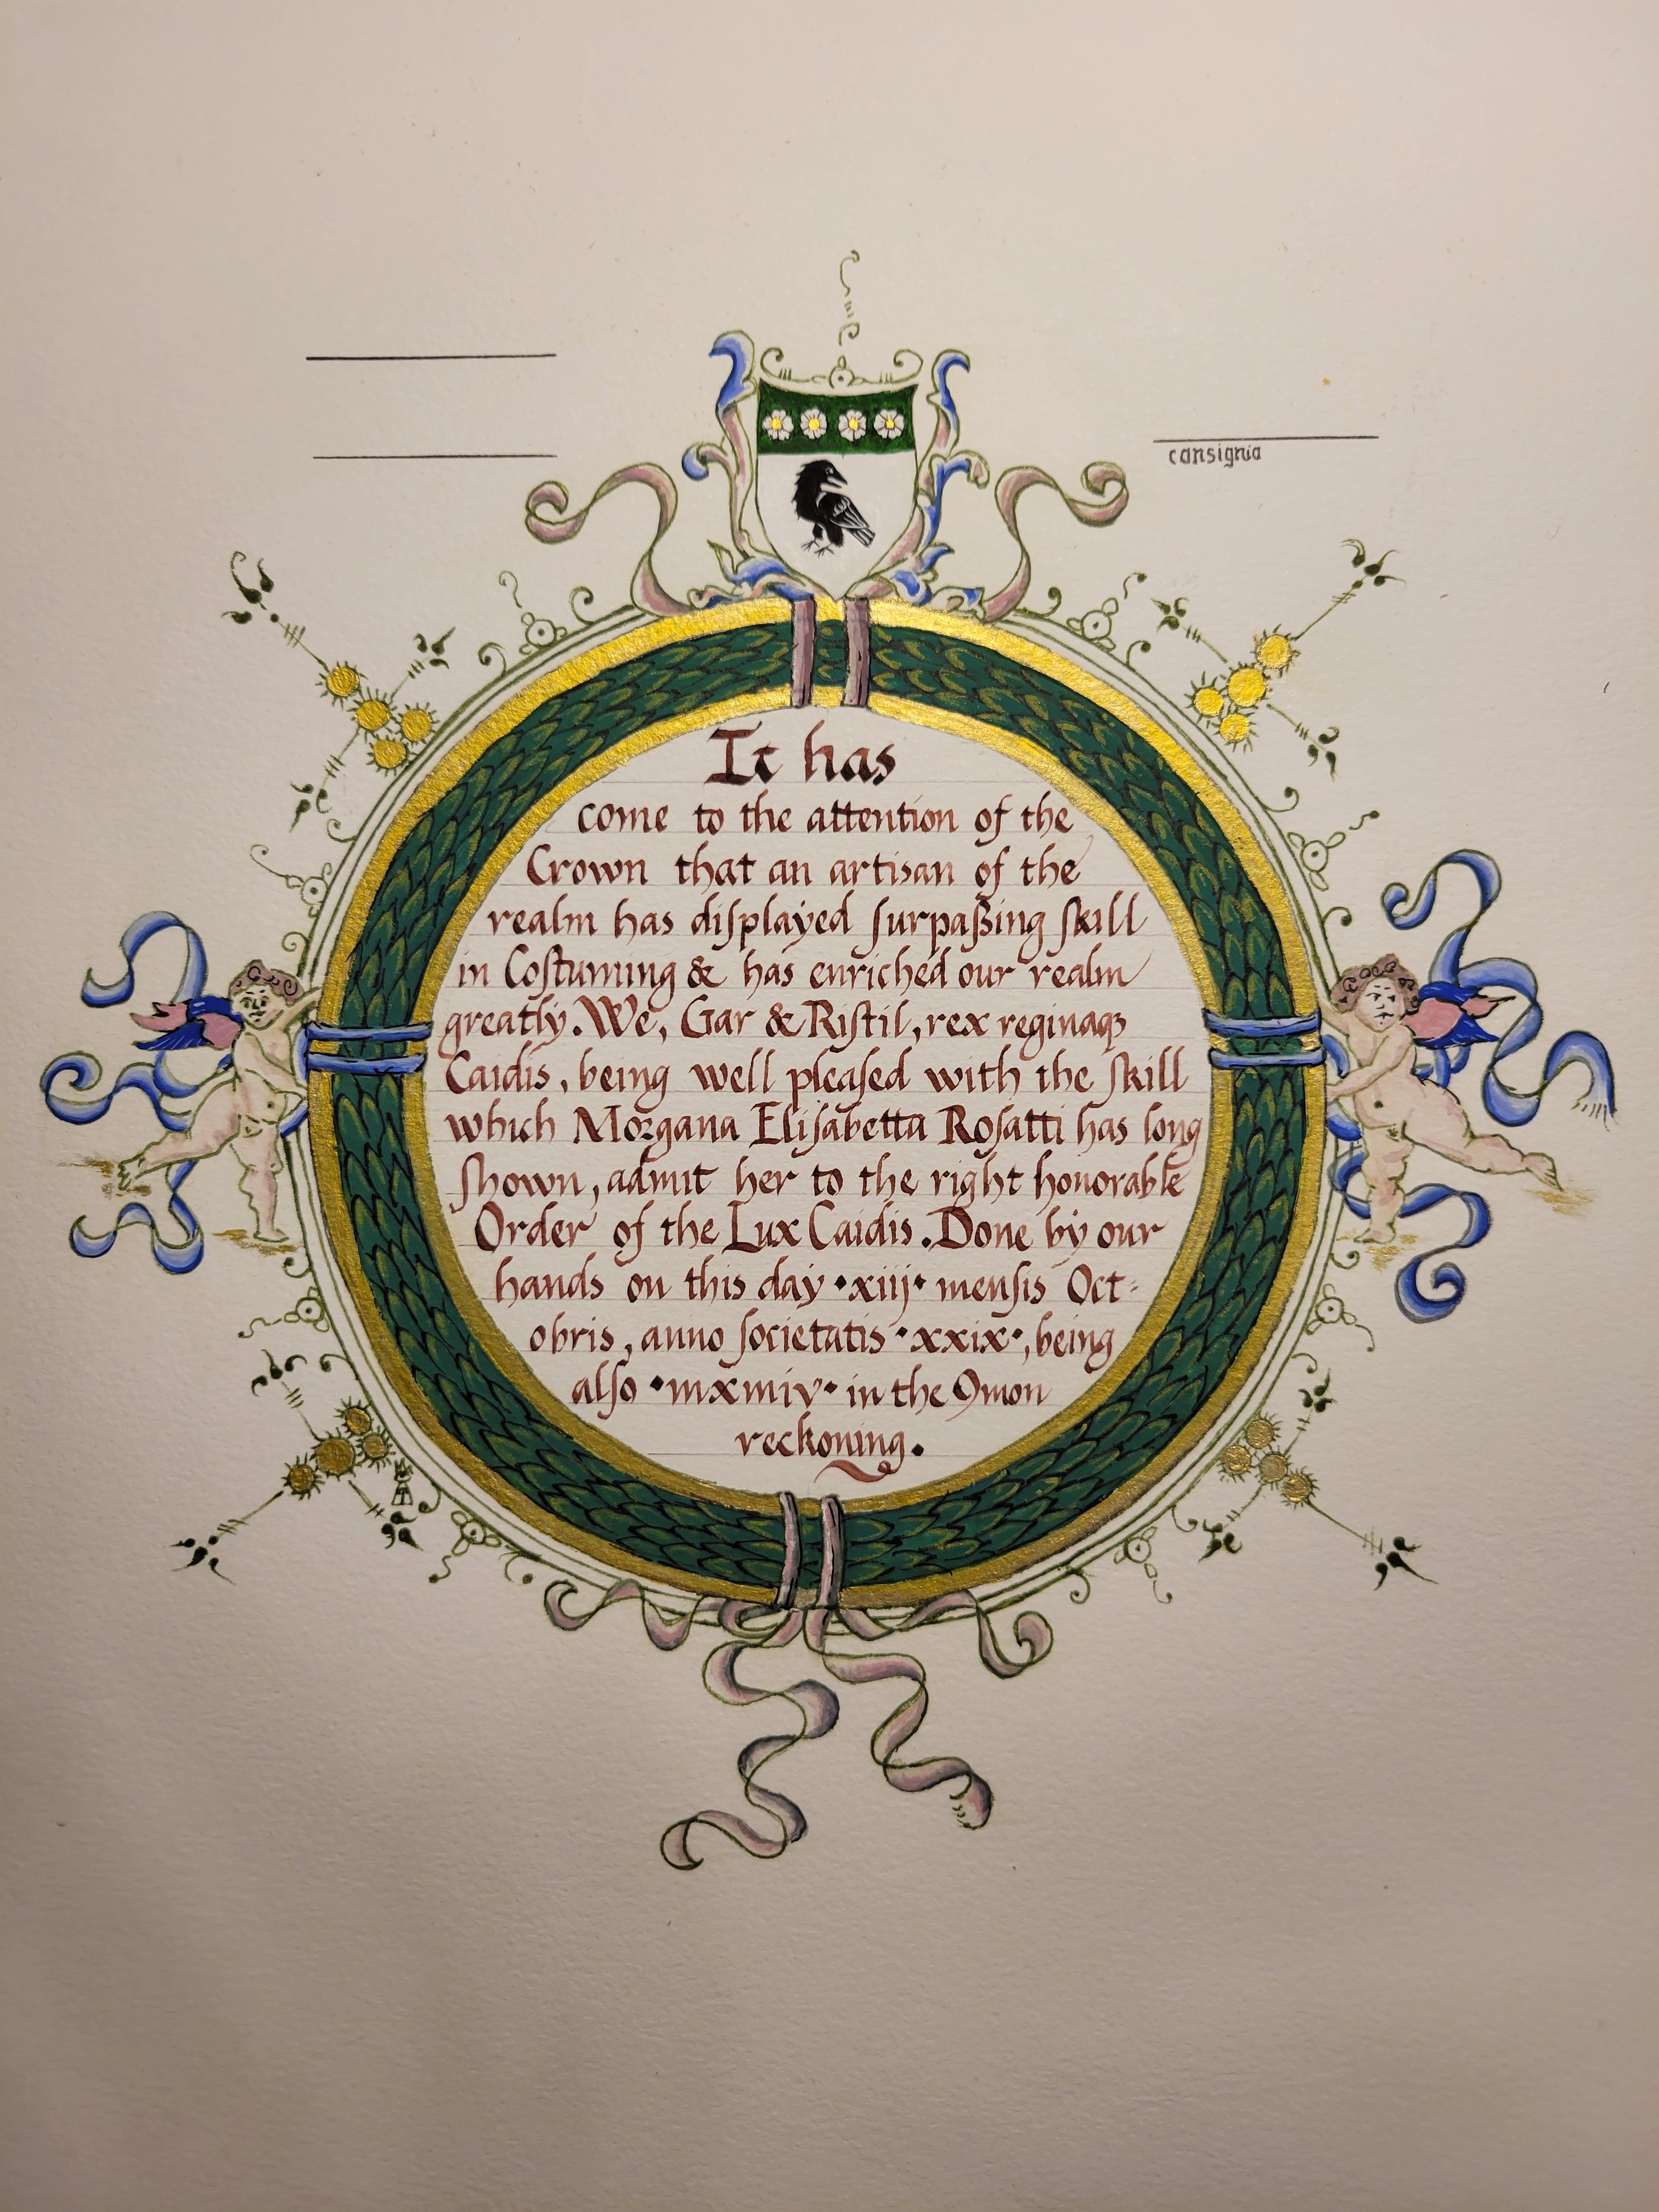 consignia
It has
come to the attention of the
Crown that an artisan of the
realm has diſplayed ſurpaßing ſkill
in Coſtuming & has enriched our realm
greatly. We, Gar & Riſtil, rex reginaqꝫ
Caidis, being well pleaſed with the ſkill
which Morgana Eliſabetta Roſatti has long
ſhown, admit her to the right honorable
Order of the Lux Caidis. Done by our
hands on this day •xiij• menſis Oct-
obris, anno ſocietatis •xxix•, being
alſo •mxmiv• in the 9mon
reckoning.